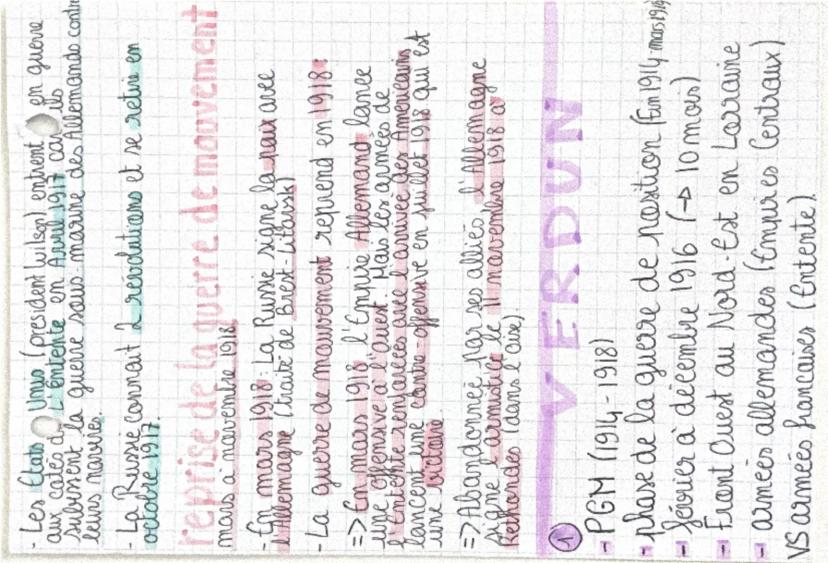 - Les Etats Unis (président Wilson) entrent en guerre
aux cotés de l'entente en Avril 1917 car ils
subissent la guerre sous-marine des Allemands contre
leurs navires.
- La Russie connait 2 révolutions et se retire en
octobre 1917.
reprise de la guerre de mouvement
mars à novembre 1918
- En mars 1918 : La Russie signe la paix avec
l'Allemagne (traité de Brest-Litovsk)
- La guerre de mouvement reprend en 1918 :
=> En mars 1918 l'Empire Allemand lance
une offensive à l'ouest. Mais les armées de
l'Entente renforcées avec l'arrivée des Américains
lancent une contre-offensive en juillet 1918 qui est
une victoire.
=> Abandonnée par ses alliés l'Allemagne
signe l'armistice le 11 novembre 1918 à
Rethondes (dans l'Oise).
VERDUN
1
- PGM (1914-1918)
- phase de la guerre de position (fin 1914 mars 1918)
- février à décembre 1916 (→ 10 mois)
- Front Ouest au Nord-Est en Lorraine
- armées allemandes (Empires Centraux)
VS armées françaises (Entente)